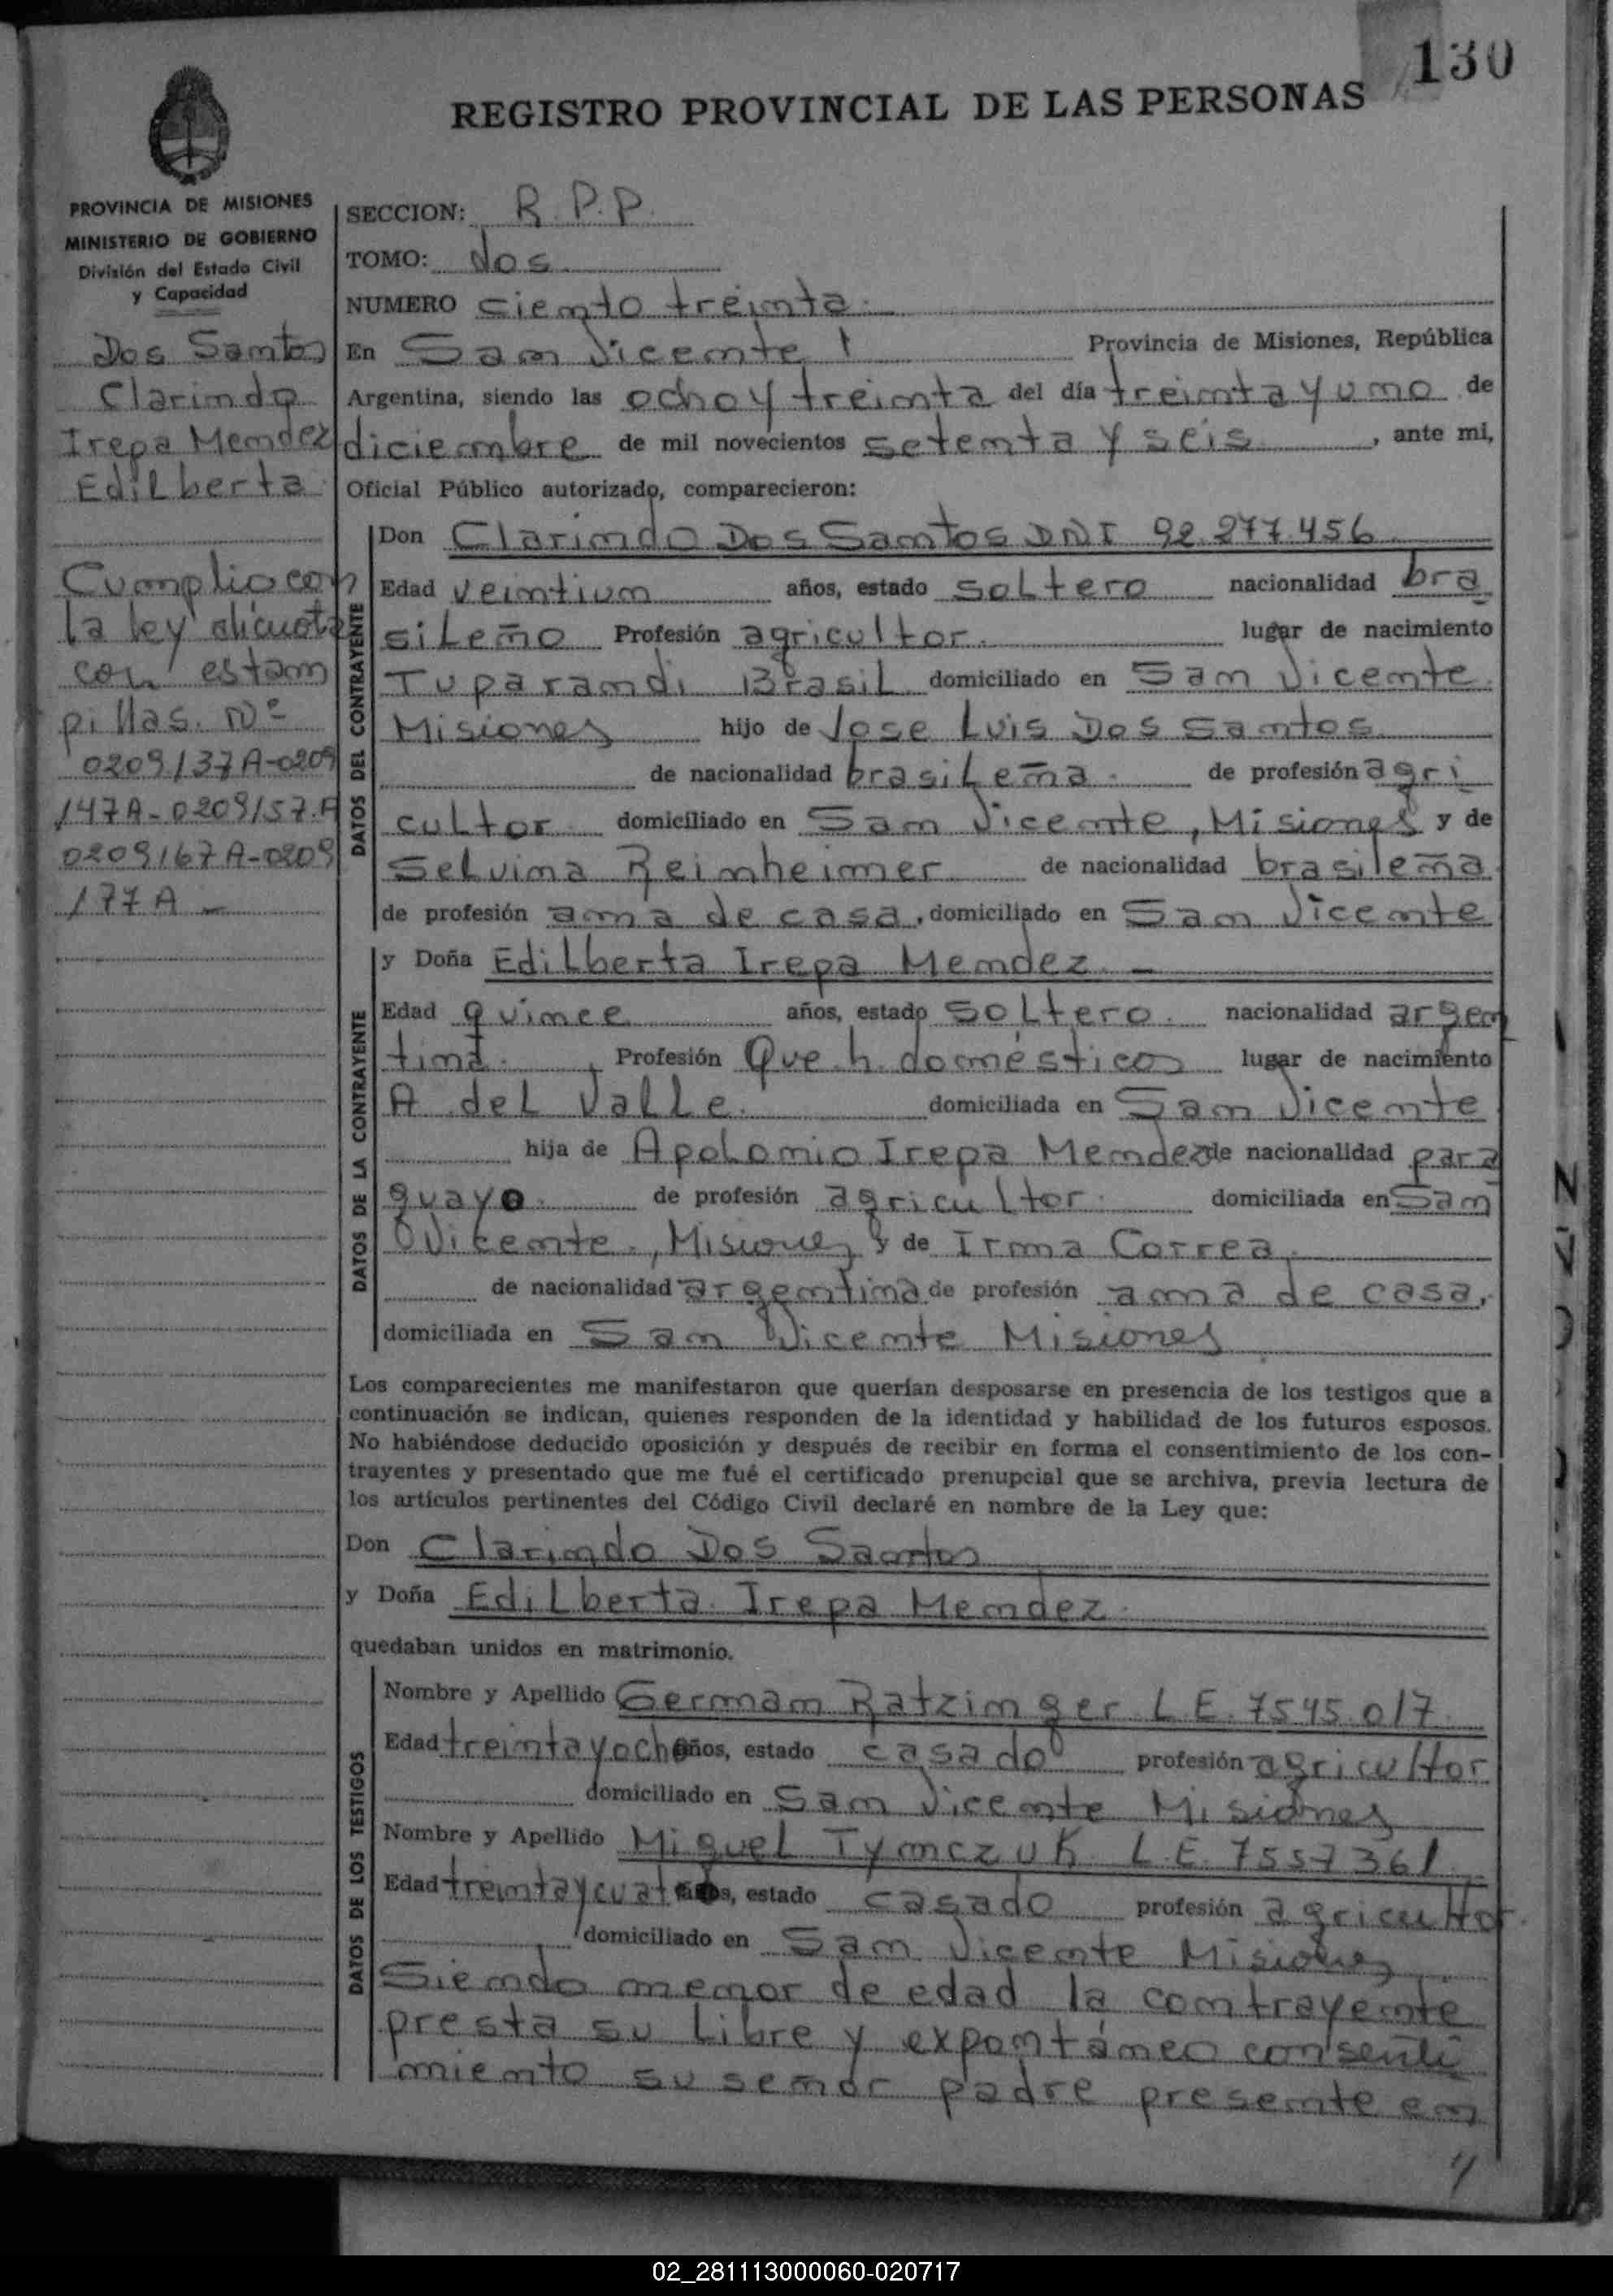 130
REGISTRO PROVINCIAL DE LAS PERSONAS
PROVINCIA DE MISIONES
MINISTERIO DE GOBIERNO
División del Estado Civil
y Capacidad
Dos Santos
Clarindo
Irepa Mendez
Edilberta
Cumplio con
la ley alicuota
con estam
pillas. Nº
0209137A-0209
147A-0209157.A
0209167A-0209
177A -
SECCION: R.P.P.
TOMO: dos
NUMERO ciento treinta
En San Vicente 1 Provincia de Misiones, República
Argentina, siendo las ocho y treinta del día treinta y uno de
diciembre de mil novecientos setenta y seis, ante mi,
Oficial Público autorizado, comparecieron:
DATOS DEL CONTRAYENTE
Don Clarindo Dos Santos DNI 92.277.456
Edad veintiun años, estado soltero nacionalidad bra
sileño Profesión agricultor. lugar de nacimiento
Tuparandi Brasil domiciliado en San Vicente
Misiones hijo de Jose Luis Dos Santos
de nacionalidad brasileña. de profesión agri
cultor domiciliado en San Vicente, Misiones y de
Selvina Reinheimer de nacionalidad brasileña
de profesión ama de casa, domiciliado en San Vicente
DATOS DE LA CONTRAYENTE
y Doña Edilberta Irepa Mendez -
Edad quince años, estado soltero. nacionalidad argen
tina. Profesión Que h. domésticos lugar de nacimiento
A del Valle. domiciliada en San Vicente
hija de Apolonio Irepa Mendez de nacionalidad para
guayo. de profesión agricultor. domiciliada en San
Vicente, Misiones y de Irma Correa.
de nacionalidad argentina de profesión ama de casa,
domiciliada en San Vicente Misiones
Los comparecientes me manifestaron que querían desposarse en presencia de los testigos que a
continuación se indican, quienes responden de la identidad y habilidad de los futuros esposos.
No habiéndose deducido oposición y después de recibir en forma el consentimiento de los con-
trayentes y presentado que me fué el certificado prenupcial que se archiva, previa lectura de
los artículos pertinentes del Código Civil declaré en nombre de la Ley que:
Don Clarindo Dos Santos
y Doña Edilberta Irepa Mendez.
quedaban unidos en matrimonio.
DATOS DE LOS TESTIGOS
Nombre y Apellido German Ratzinger L E. 7545.017
Edad treinta y ocho años, estado casado profesión agricultor
domiciliado en San Vicente Misiones
Nombre y Apellido Miguel Tymczuk L.E. 7557361
Edad treinta y cuatro años, estado casado profesión agricultor
domiciliado en San Vicente Misiones
Siendo menor de edad la contrayente
presta su libre y expontáneo consenti
miento su señor padre presente en
02_281113000060-020717